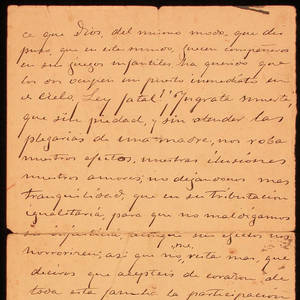 ce que Dios, del mismo modo, que dis
puso, que en este mundo, fuesen compañeros
en sus juegos infantiles ha querido que
los dos ocupen un puesto inmediato en
el cielo. Ley fatal!! Ingrata muerte,
que sin piedad, y sin atender las
plegarias de una madre, nos roba
nuestros afectos, nuestras ilusiones
nuestros amores, no dejandonos mas
tranquilidad, que en su tributacion
igualitaria, para que no maldigamos
su injusticia, aunque sus efectos nos
horroricen; así que no, resta mas, que
nos
deciros que acepteis de corazon, de
toda esta familia la participacion